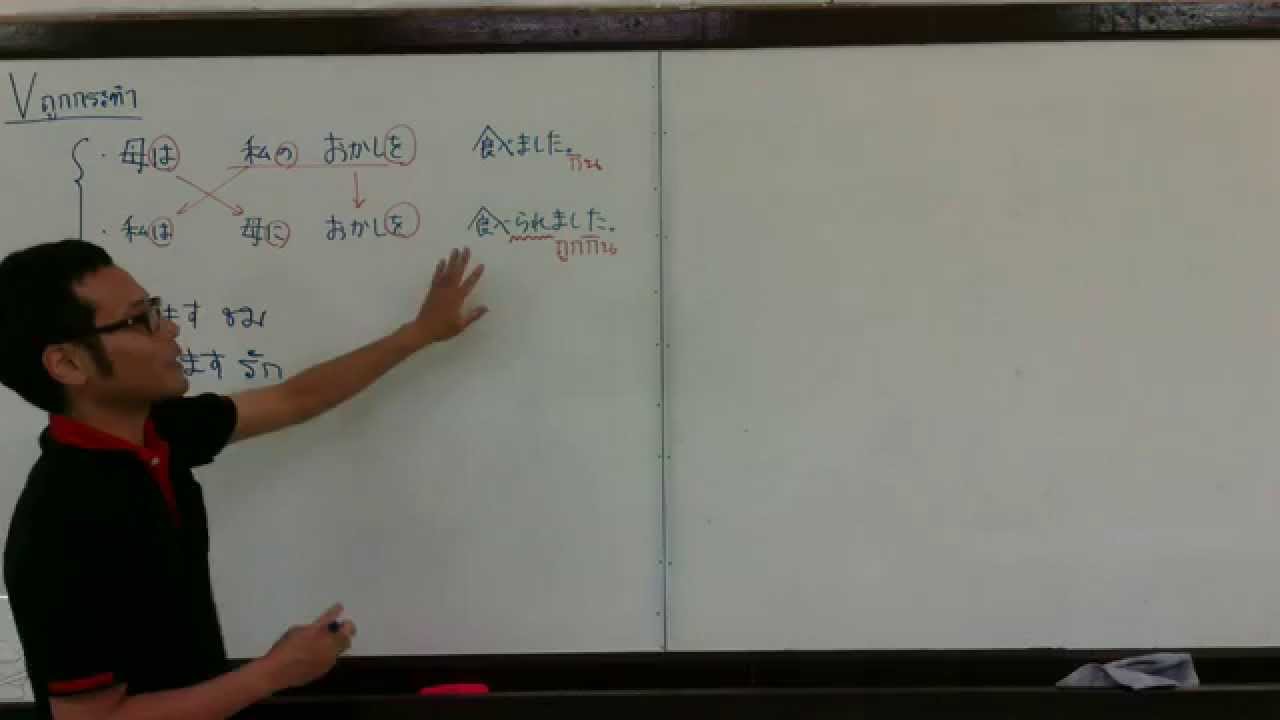 V ถูกกระทำ
・母は 私の おかしを 食べました。
กิน
・私は 母に おかしを 食べられました。
ถูกกิน
ます ชม
ます รัก